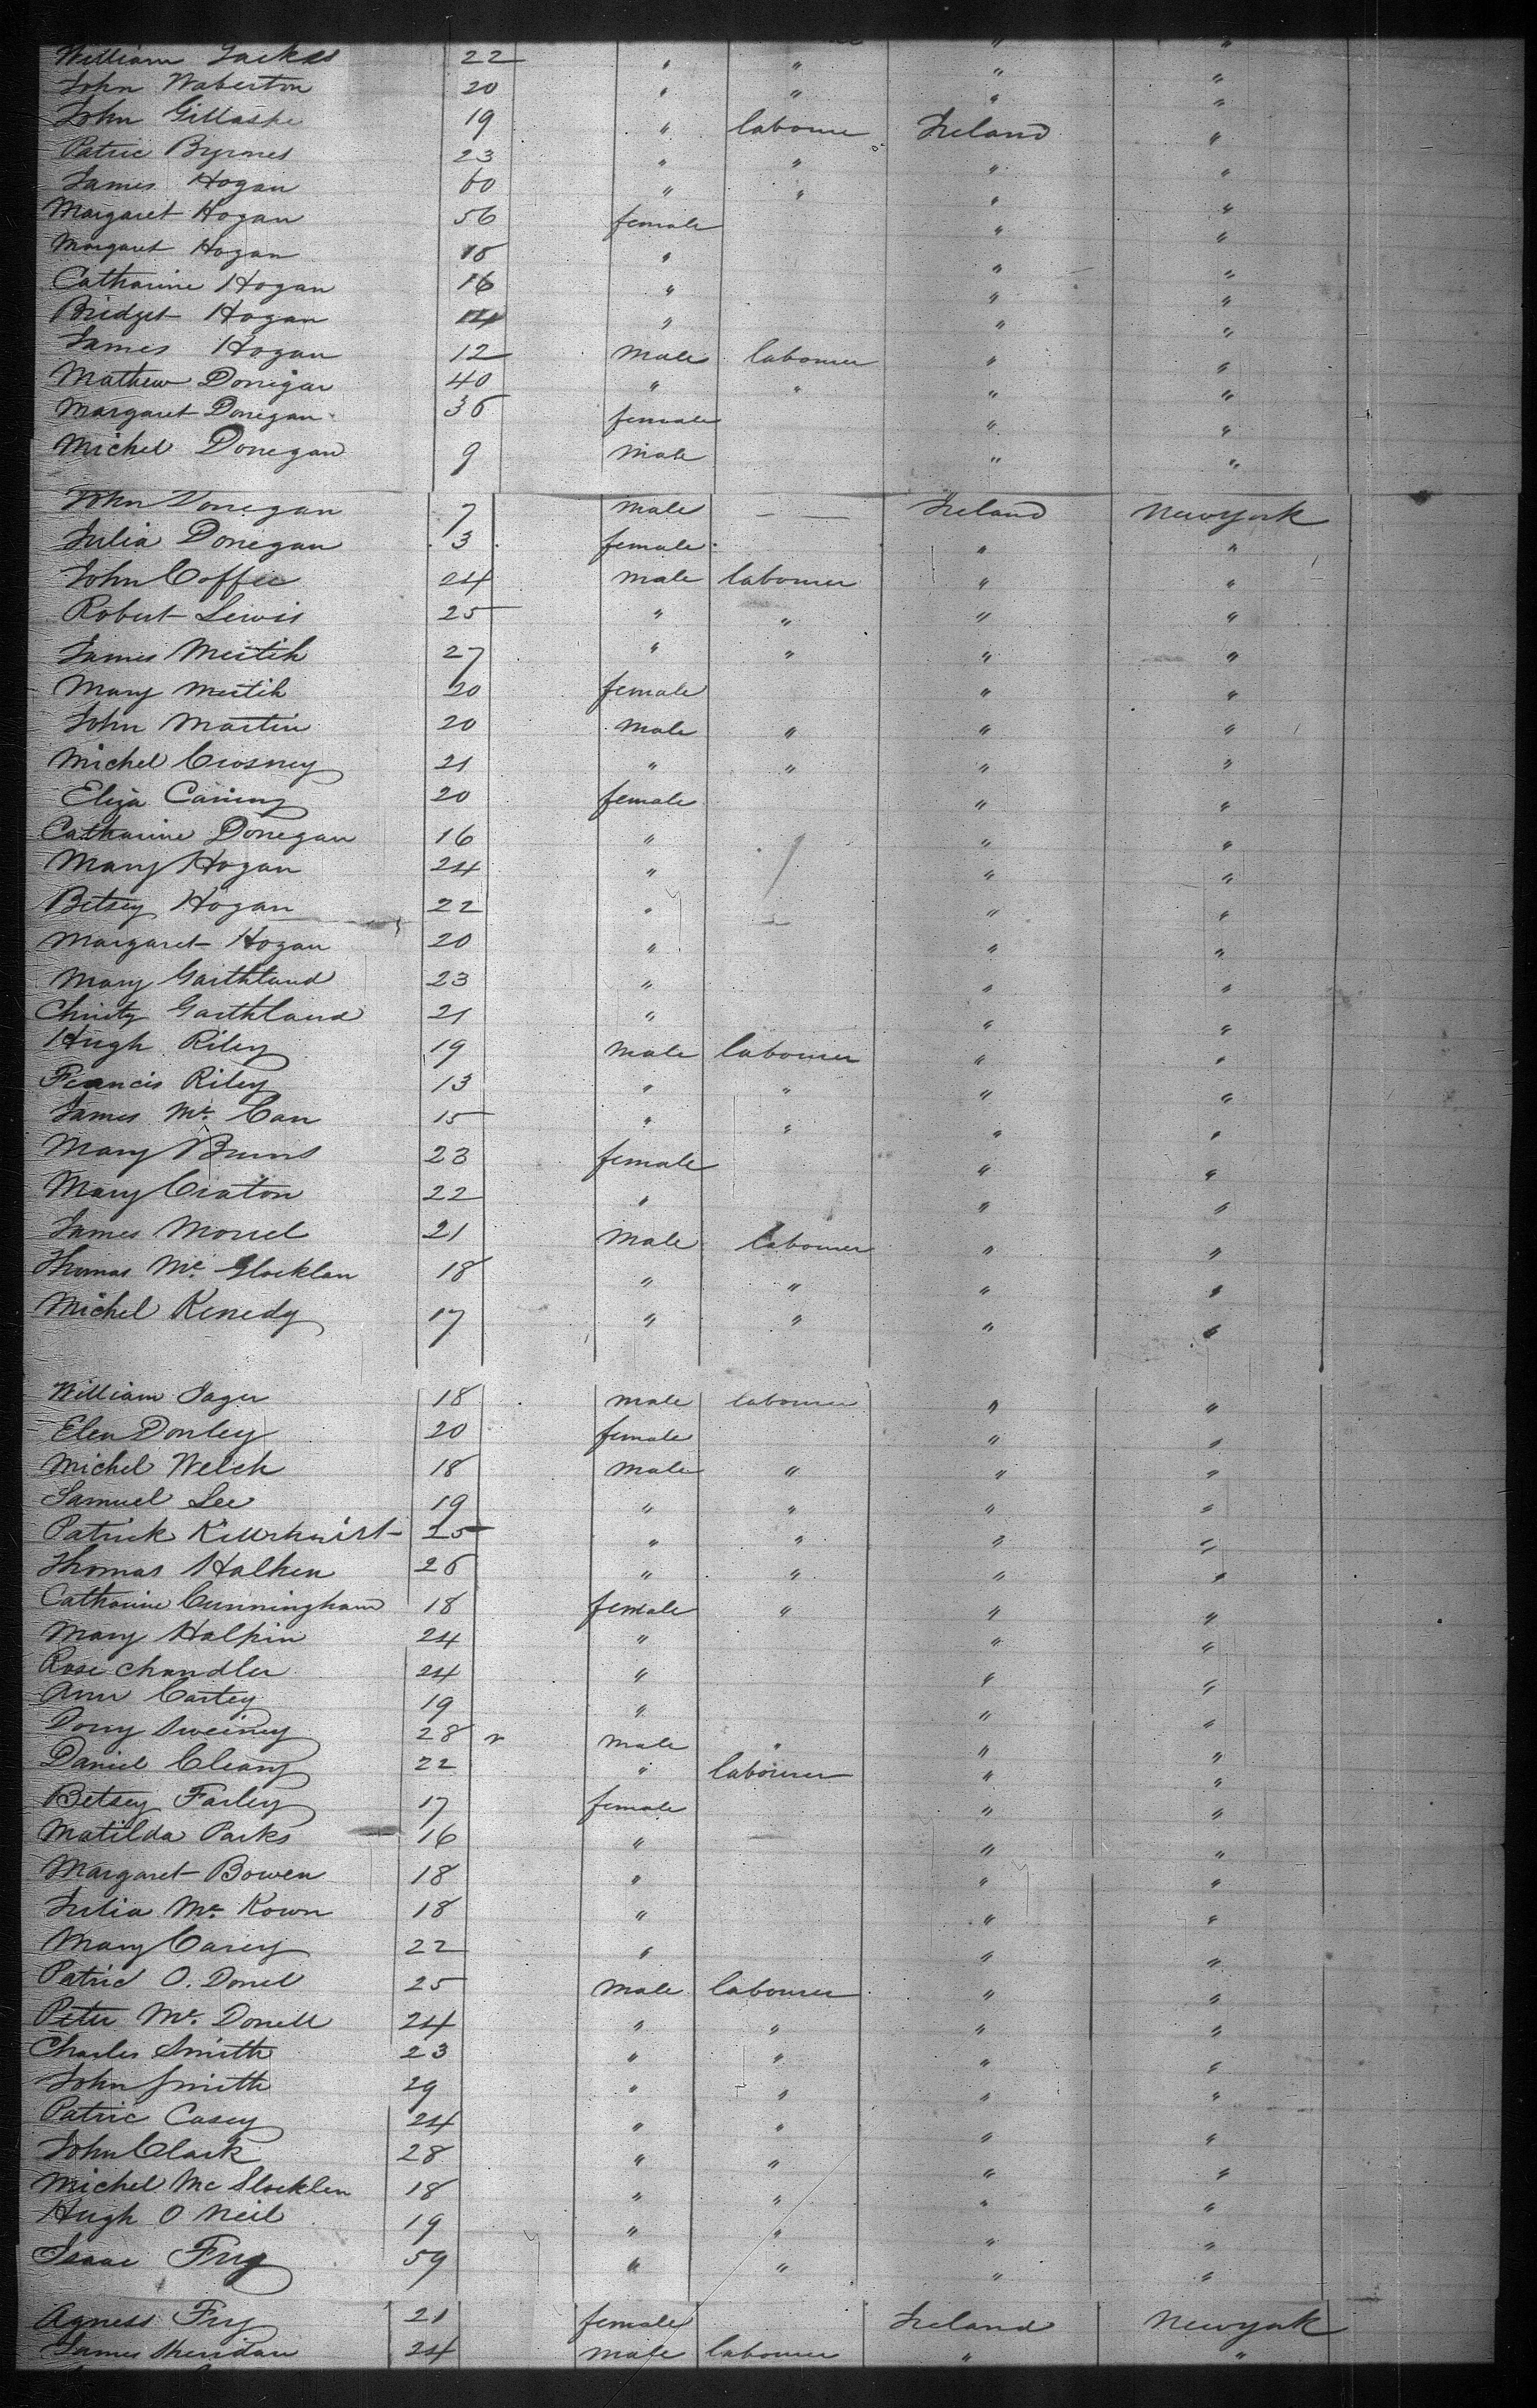 William Jackes 22 " " " "
John Waberton 20 " " " "
John Gillaspe 19 " labourer Ireland "
Patric Byrnes 23 " " " "
James Hogan 60 " " " "
Margaret Hogan 56 female " "
Margaret Hogan 18 " " "
Catharine Hogan 16 " " "
Bridget Hogan 14 " " "
James Hogan 12 male labourer " "
Mathew Donegan 40 " " " "
Margaret Donegan 36 female " "
Michel Donegan 9 male " "
John Donegan 7 male — — Ireland Newyork
Julia Donegan 3 female " "
John Coffee 24 male labourer " "
Robert Lewis 25 " " " "
James Mertih 27 " " " "
Mary Mertih 20 female " "
John Martin 20 male " " "
Michel Crosney 21 " " " "
Eliza Caning 20 female " "
Catharine Donegan 16 " " "
Mary Hogan 24 " " "
Betsey Hogan 22 " " "
Margaret Hogan 20 " " "
Mary Garthland 23 " " "
Christy Garthland 21 " " "
Hugh Riley 19 male labourer " "
Francis Riley 13 " " " "
James Mc. Can 15 " " " "
Mary Burns 23 female " "
Mary Craton 22 " " "
James Morrel 21 male labourer " "
Thomas Mc. Glocklan 18 " " " "
Michel Kenedy 17 " " " "
William Jager 18 male labourer " "
Elen Donley 20 female " "
Michel Welch 18 male " " "
Samuel Lee 19 " " " "
Patrick 25 " " " "
Thomas Halhen 26 " " " "
Catharine Cunningham 18 female " " "
Mary Halpin 24 " " "
Rose Chandler 24 " " "
Ann Cartey 19 " " "
Dory Sweiney 28 male " " "
Daniel Cleary 22 " labourer " "
Betsey Farley 17 female " "
Matilda Parks 16 " " "
Margaret Bowen 18 " " "
Julia Mc. Kown 18 " " "
Mary Carey 22 " " "
Patric O. Donel 25 male labourer " "
Peter Mc. Donell 24 " " " "
Charles Smith 23 " " " "
John Smith 29 " " " "
Patric Casey 24 " " " "
John Clark 28 " " " "
Michel Mc Slocklen 18 " " " "
Hugh O Neil 19 " " " "
Isaac Fry 59 " " " "
Agness Fry 21 female Ireland Newyork
James Sheridan 24 male labourer " "